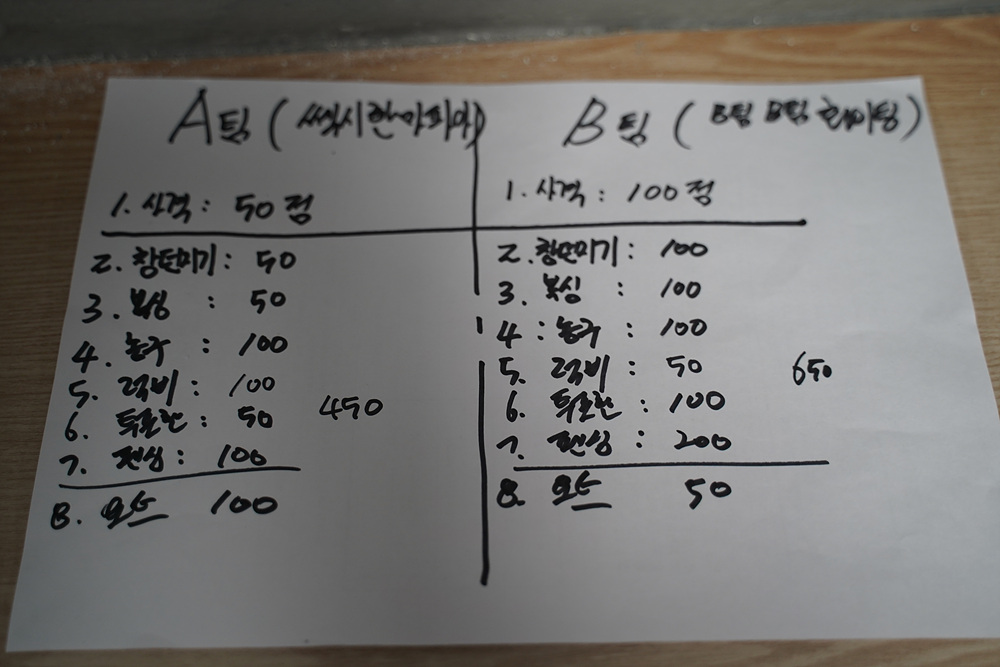 A팀 (섹시한마피아)
1. 사격 : 50점
2. 창던지기 : 50
3. 복싱 : 50
4. 농구 : 100
5. 럭비 : 100
6. 투호 : 50
7. 펜싱 : 100
450
8. 요트 100
B팀 (B팀 B팀 화이팅)
1. 사격 : 100점
2. 창던지기 : 100
3. 복싱 : 100
4 : 농구 : 100
5. 럭비 : 50
6. : 100
7. 펜싱 : 200
650
8. 50